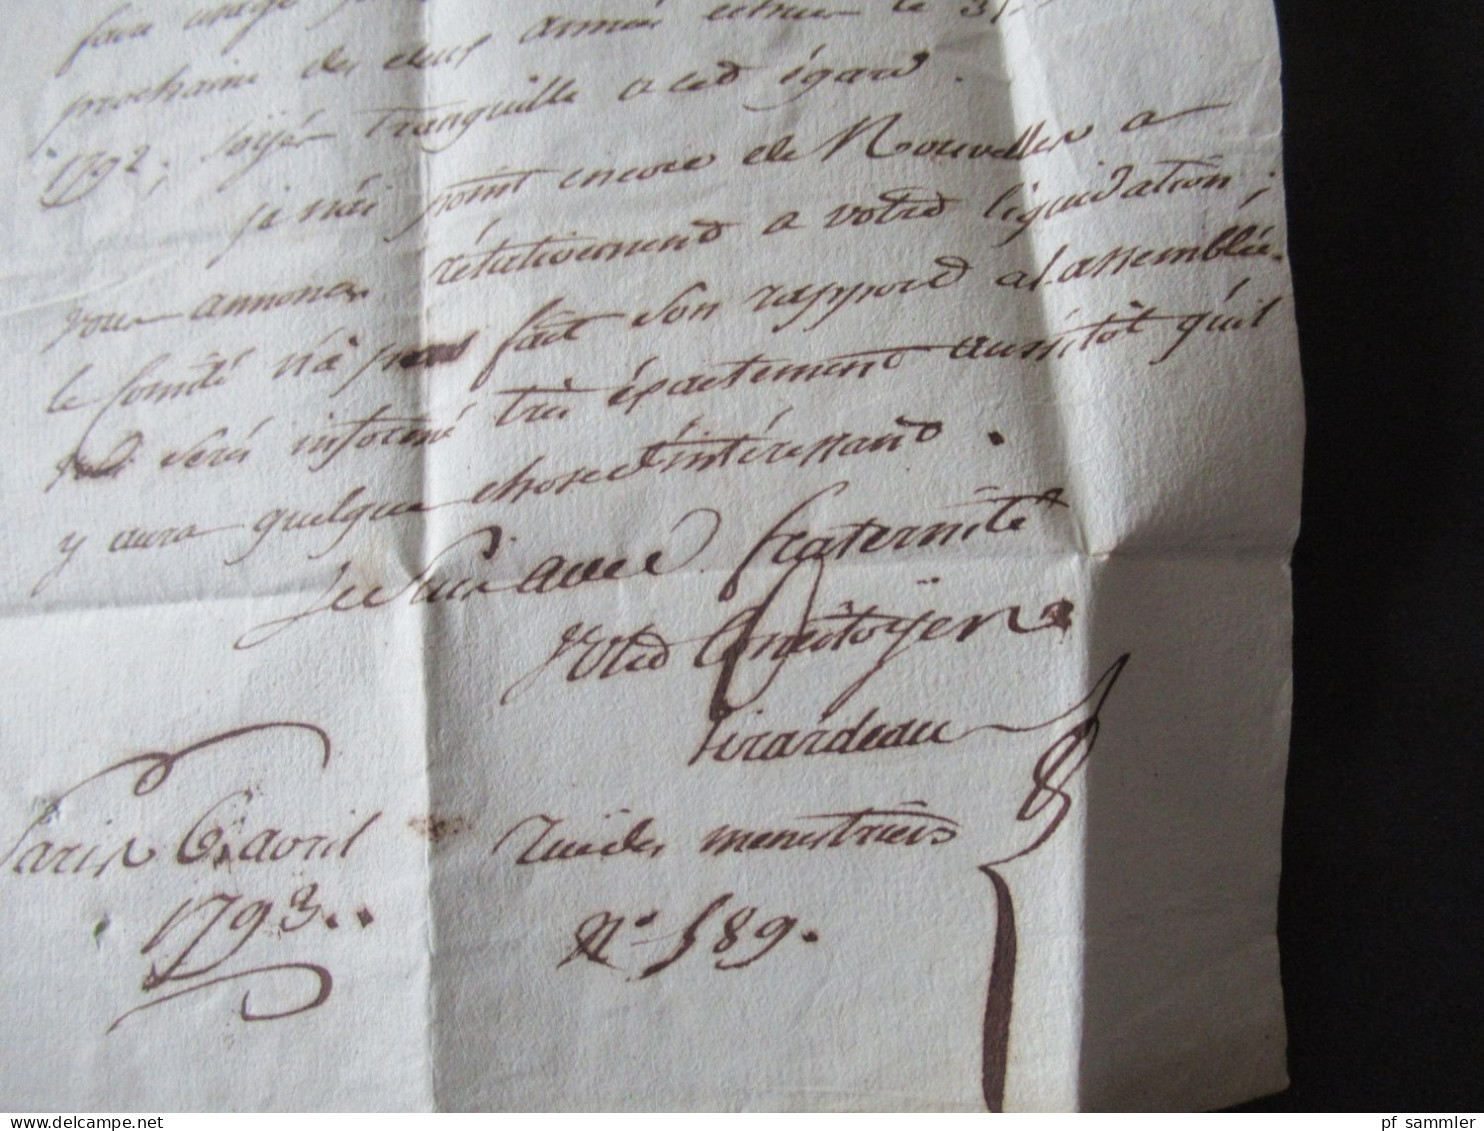 faire usage
prochain des deux années echues le 31
1792; soyés tranquille a cet égard.
je n'ai point encore de Nouvelles a
vous annoncer rélativement a votre liquidation;
le Comité n'a pas fait son rapport a l'assemblée.
serés informé très éxactement aussitôt qu'il
y aura quelque chose d'intéressant.
Je suis avec fraternité
Votre Concitoÿen
Girardeau
Paris 6. avril
1793..
rue des menestriers
N° 589.
pf sammler